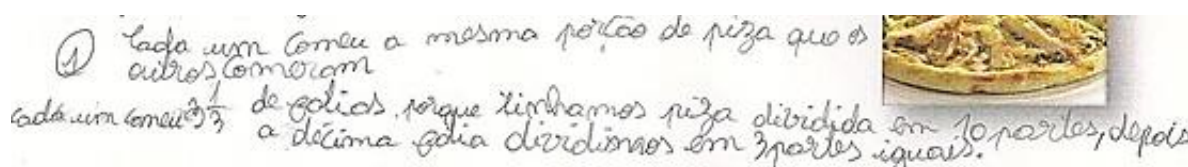 ① Cada um comeu a mesma porção de piza que os
outros comeram
cada um comeu 3 1/3 de fatias porque tinhamos piza dividida em 10 partes, depois
a décima fatia dividimos em 3 partes iguais.